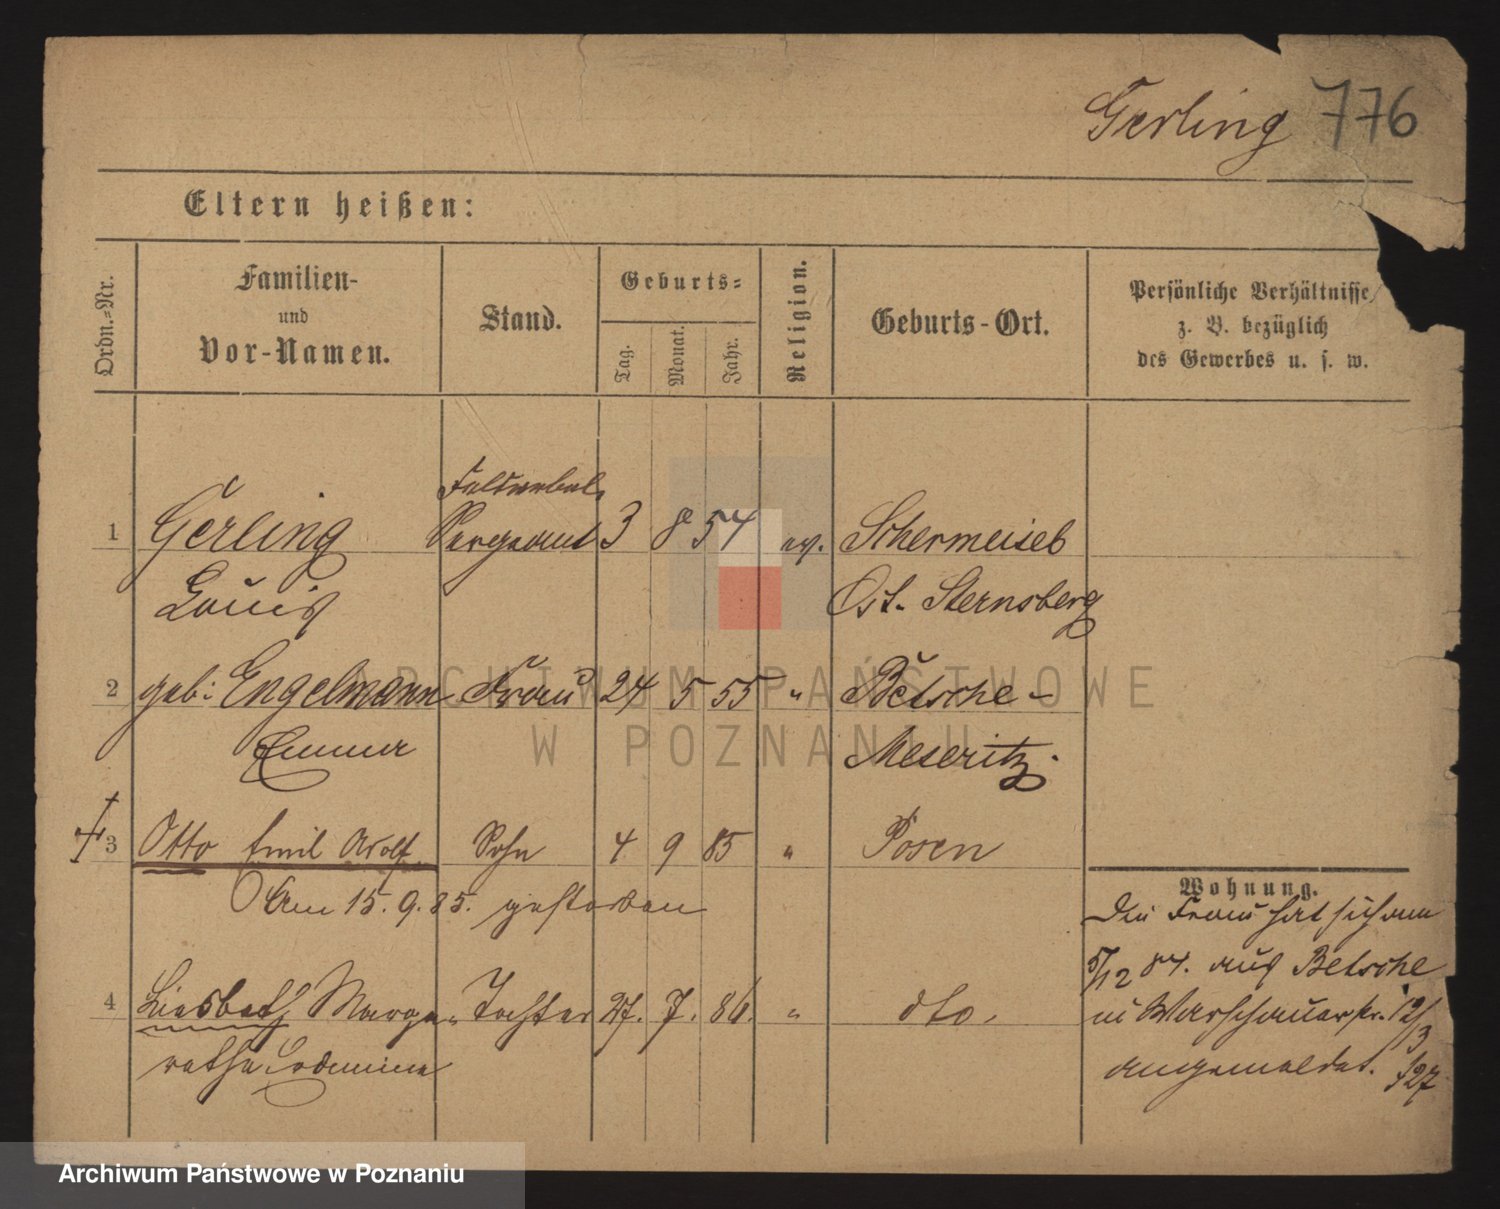 Gerling 776
Eltern heißen:
Ordn.=Nr.
Familien-
und
Vor-Namen.
Stand.
Geburts=
Tag.
Monat.
Jahr.
Religion.
Geburts-Ort.
Persönliche Verhältnisse
z. B. bezüglich
des Gewerbes u. s. w.
Feldwebel
1 Gerling Sergeant 3 8 54 ev. Schermeisel
Louis Ost-Sternsberg
2 geb: Engelmann Frau 24 5 55 " Betsche-
Emma Meseritz.
3 Otto Emil Adolf Sohn 4 9 85 " Posen
Am 15.9.85. gestorben
Wohnung.
Die Frau hat sich am
5/12 84. aus Betsche
4 Liesbeth Marga- Tochter 27. 7. 86. " dto.
in Warschauerstr. 12/13
rethe
angemeldet. 127
ARCHIWUM PAŃSTWOWE
W POZNANIU
Archiwum Państwowe w Poznaniu